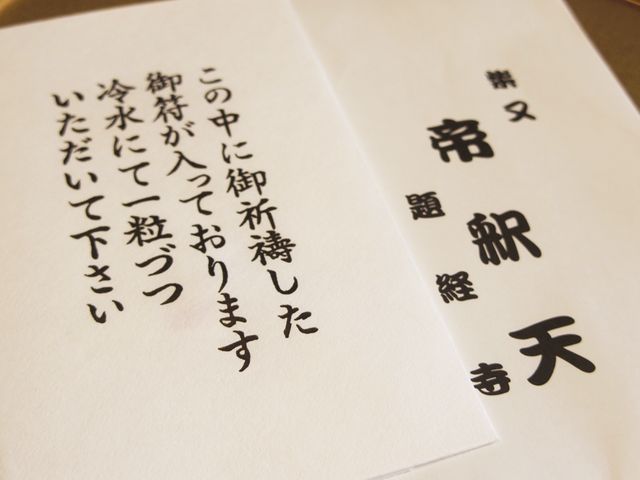 柴又
帝釈天
題経寺
この中に御祈禱した
御符が入っております
冷水にて一粒づつ
いただいて下さい